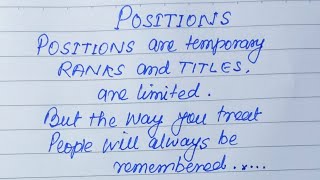 POSITIONS
POSITIONS are temporary
RANKS and TITLES,
are limited.
But the way you treat
People will always be
remembered.....